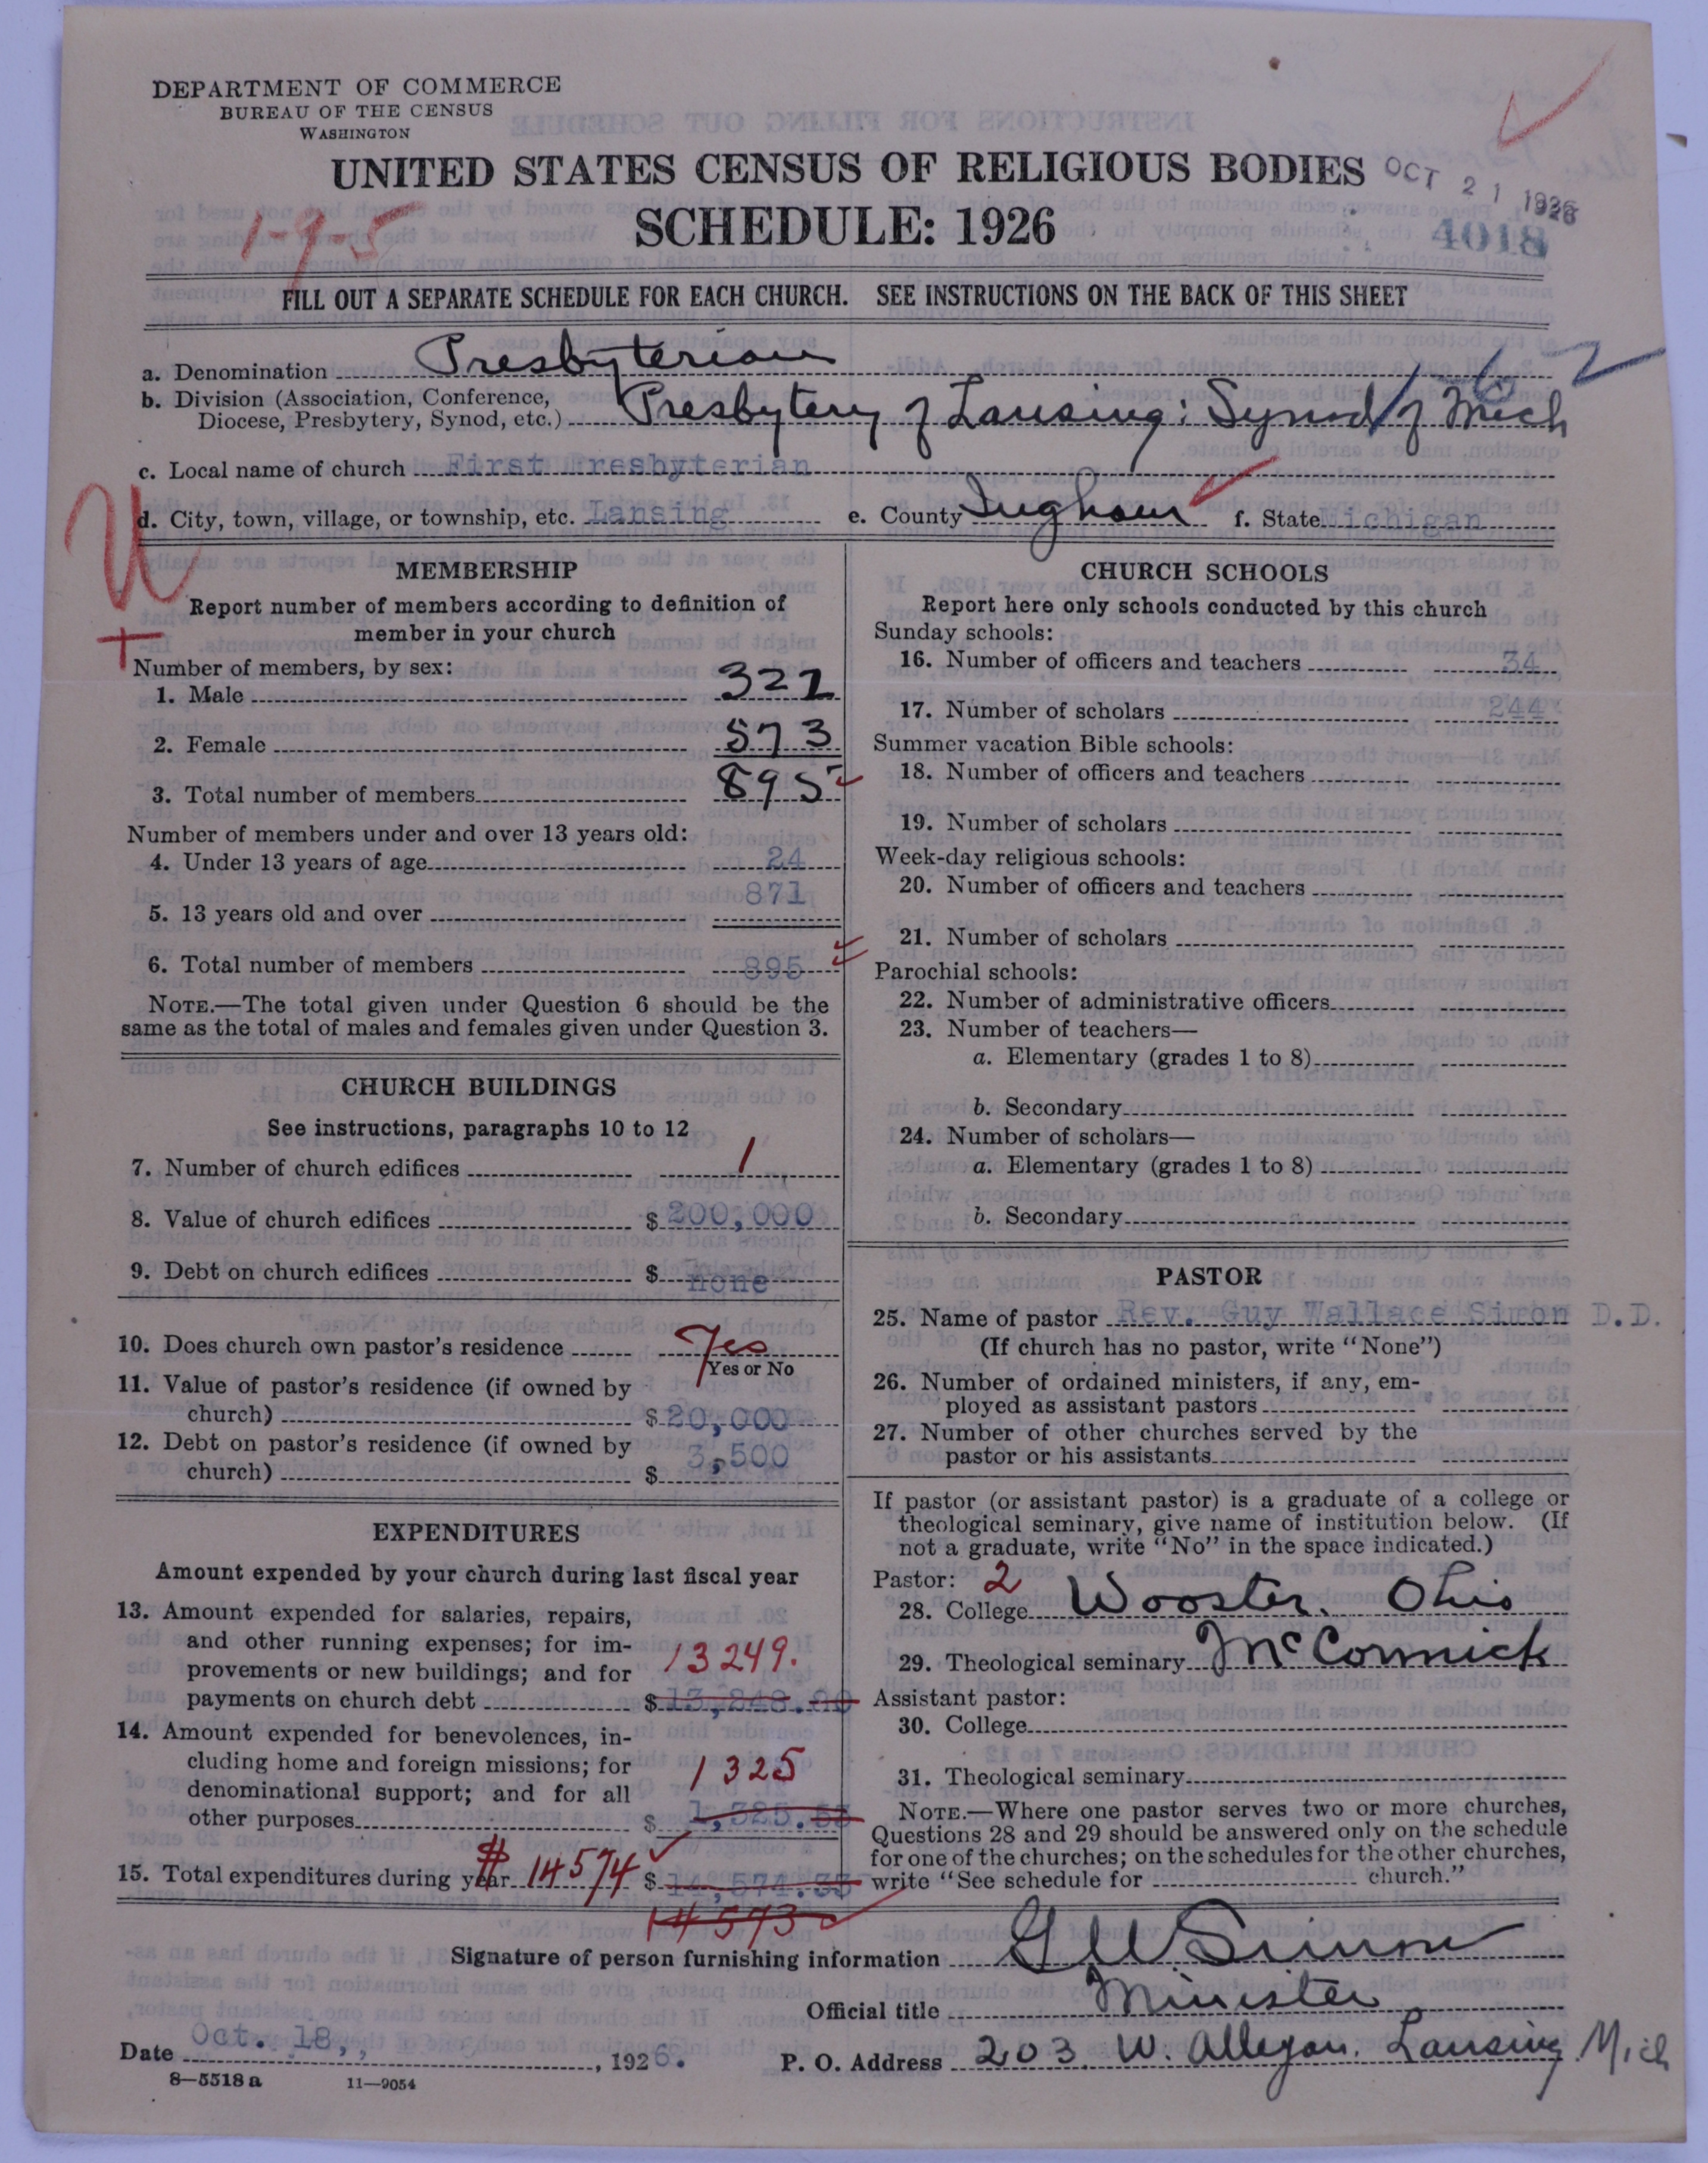 DEPARTMENT OF COMMERCE
BUREAU OF THE CENSUS
WASHINGTON
UNITED STATES CENSUS OF RELIGIOUS BODIES
OCT 21 1926
SCHEDULE: 1926
4018
1-9-5
FILL OUT A SEPARATE SCHEDULE FOR EACH CHURCH. SEE INSTRUCTIONS ON THE BACK OF THIS SHEET
a. Denomination Presbyterian
b. Division (Association, Conference,
Diocese, Presbytery, Synod, etc.) Presbytery of Lansing; Synod of Mich
c. Local name of church First Presbyterian
d. City, town, village, or township, etc. Lansing e. County Ingham f. State Michigan
U
MEMBERSHIP
Report number of members according to definition of
member in your church
Number of members, by sex:
1. Male 322
2. Female 573
3. Total number of members 895
Number of members under and over 13 years old:
4. Under 13 years of age 24
5. 13 years old and over 871
6. Total number of members 895
NOTE.—The total given under Question 6 should be the
same as the total of males and females given under Question 3.
CHURCH BUILDINGS
See instructions, paragraphs 10 to 12
7. Number of church edifices 1
8. Value of church edifices $ 200,000
9. Debt on church edifices $ none
10. Does church own pastor's residence Yes
Yes or No
11. Value of pastor's residence (if owned by
church) $ 20,000
12. Debt on pastor's residence (if owned by
church) $ 3,500
EXPENDITURES
Amount expended by your church during last fiscal year
13. Amount expended for salaries, repairs,
and other running expenses; for im-
provements or new buildings; and for 13249.
payments on church debt $
14. Amount expended for benevolences, in-
cluding home and foreign missions; for
denominational support; and for all 1325
other purposes $
15. Total expenditures during year $ 14574 $
14573
CHURCH SCHOOLS
Report here only schools conducted by this church
Sunday schools:
16. Number of officers and teachers 34
17. Number of scholars 244
Summer vacation Bible schools:
18. Number of officers and teachers
19. Number of scholars
Week-day religious schools:
20. Number of officers and teachers
21. Number of scholars
Parochial schools:
22. Number of administrative officers
23. Number of teachers—
a. Elementary (grades 1 to 8)
b. Secondary
24. Number of scholars—
a. Elementary (grades 1 to 8)
b. Secondary
PASTOR
25. Name of pastor Rev. Guy Wallace Simon D.D.
(If church has no pastor, write "None")
26. Number of ordained ministers, if any, em-
ployed as assistant pastors
27. Number of other churches served by the
pastor or his assistants
If pastor (or assistant pastor) is a graduate of a college or
theological seminary, give name of institution below. (If
not a graduate, write "No" in the space indicated.)
Pastor: 2
28. College Wooster, Ohio
29. Theological seminary McCormick
Assistant pastor:
30. College
31. Theological seminary
NOTE.—Where one pastor serves two or more churches,
Questions 28 and 29 should be answered only on the schedule
for one of the churches; on the schedules for the other churches,
write "See schedule for church."
Signature of person furnishing information G W Simon
Official title Minister
Date Oct. 18, , 1926. P. O. Address 203 W. Allegan. Lansing Mich
8—5518a 11—9054